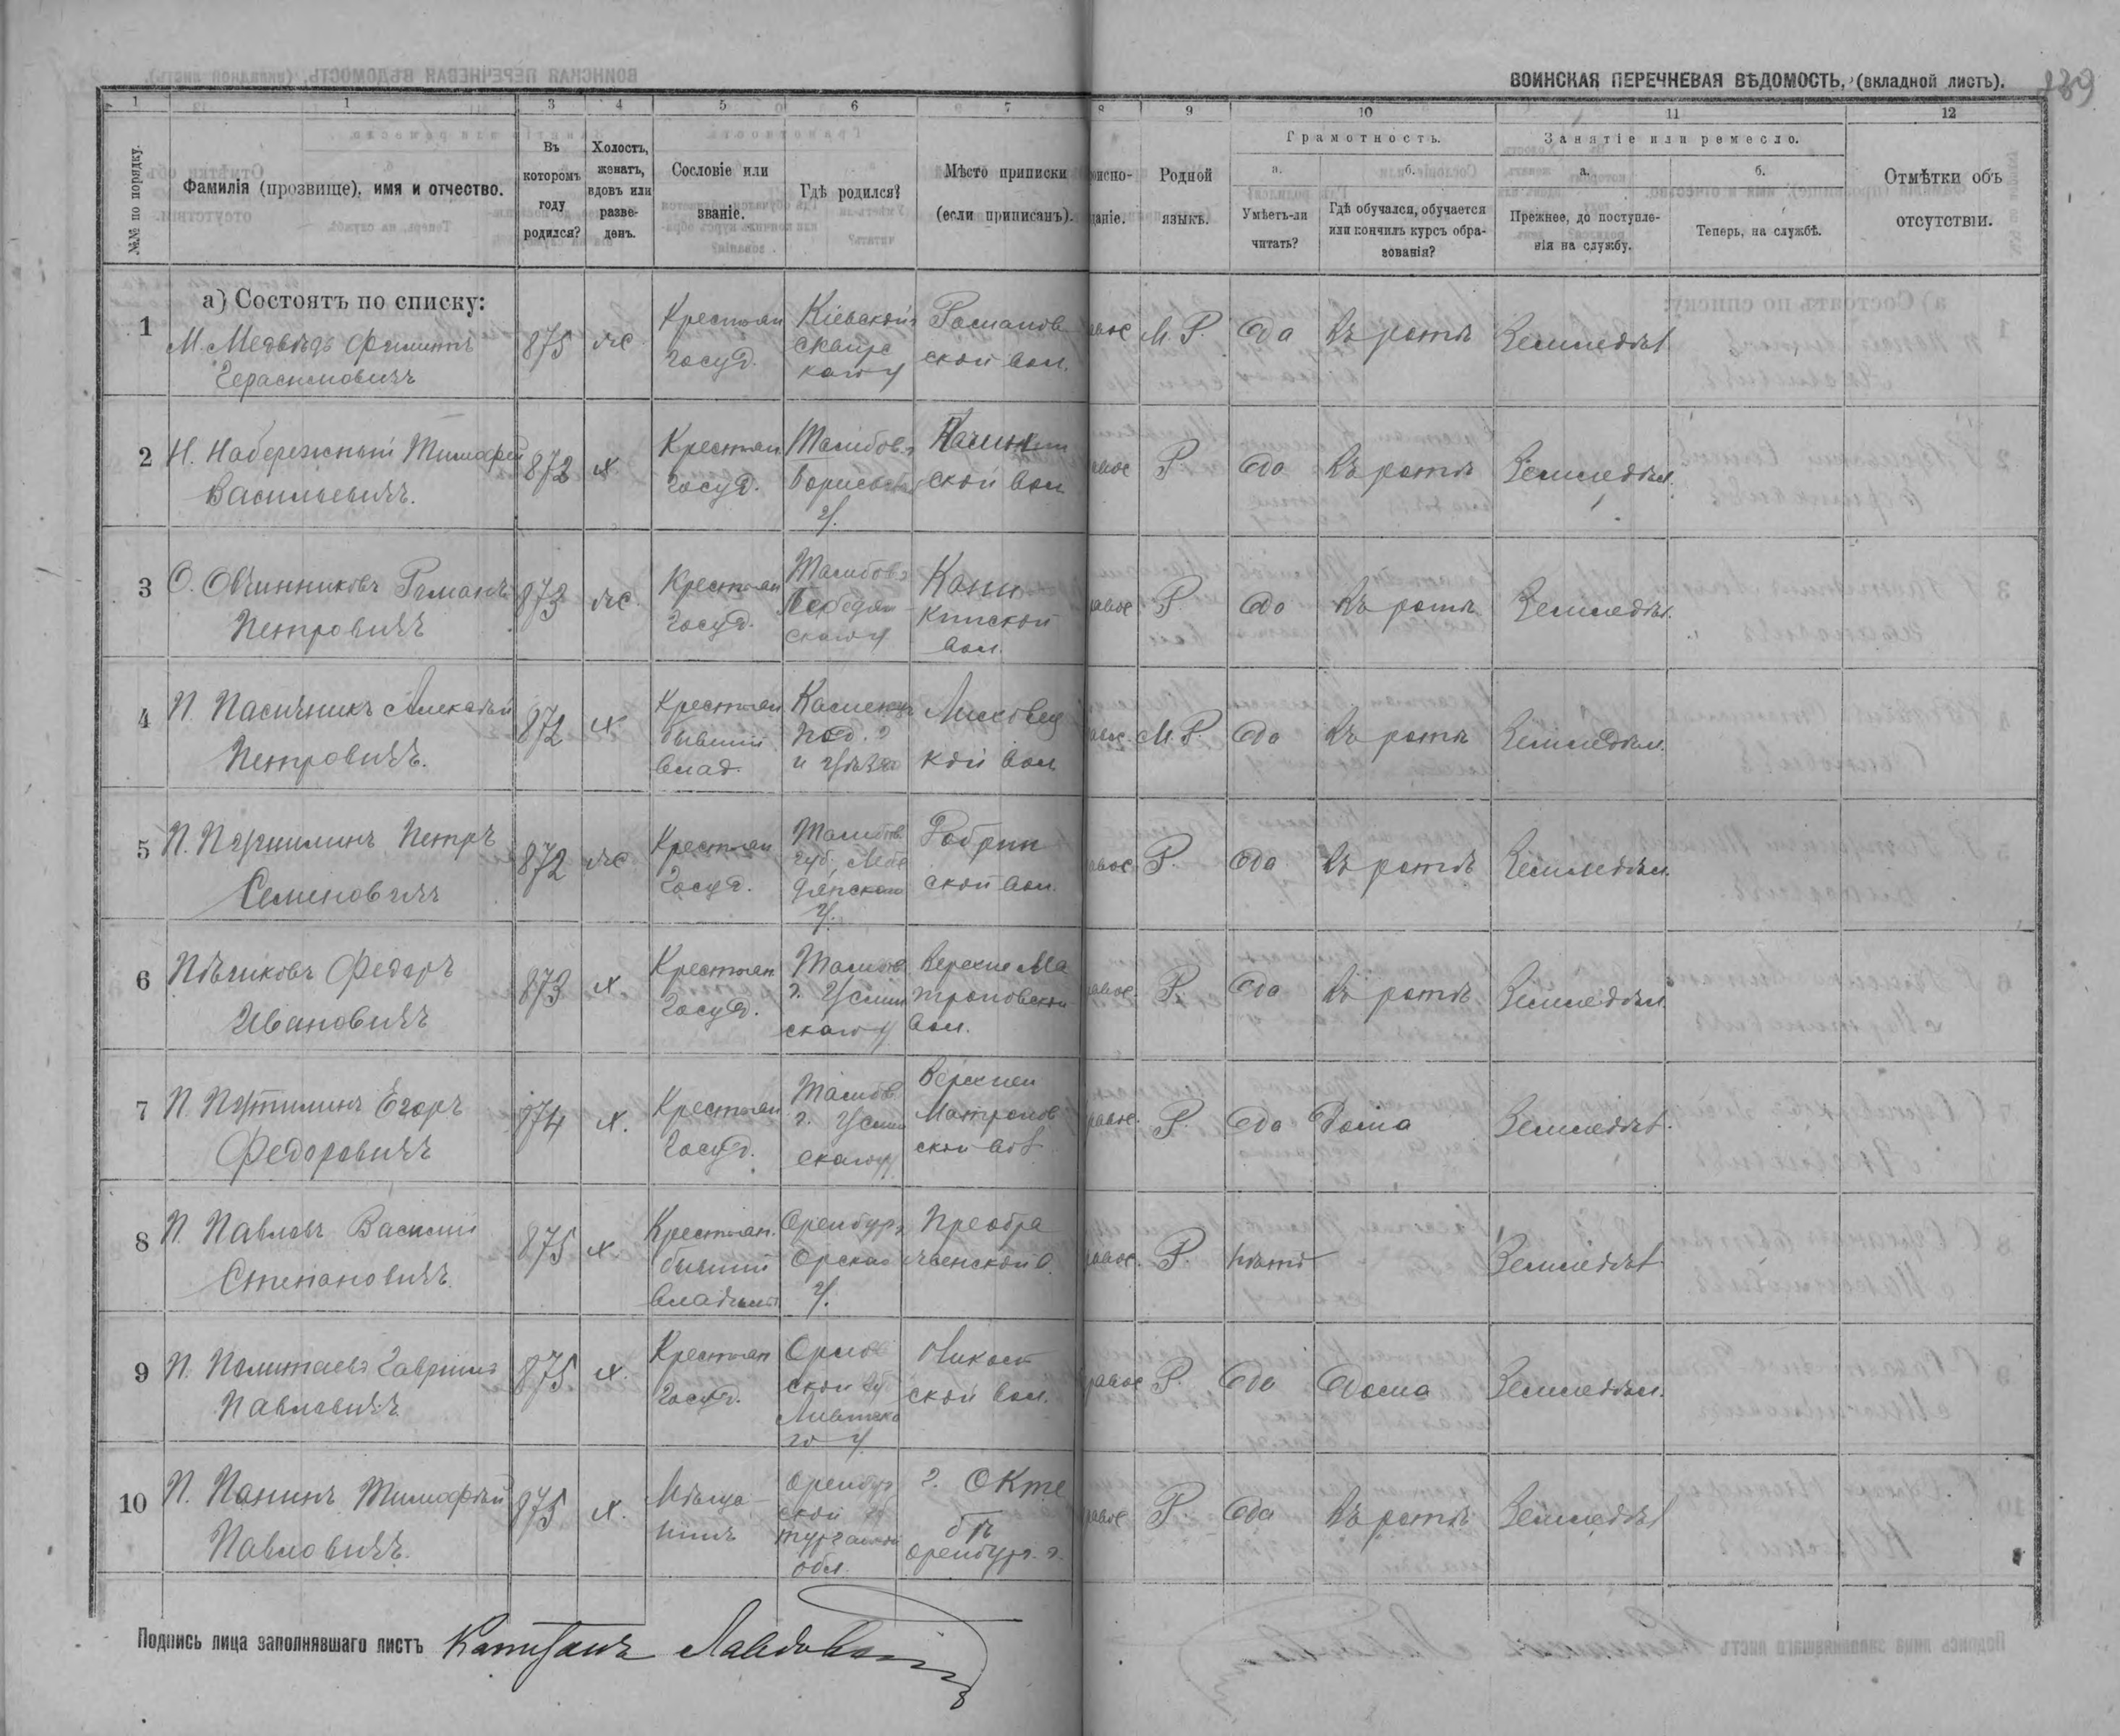 ВОИНСКАЯ ПЕРЕЧНЕВАЯ ВѢДОМОСТЬ, (вкладной листъ).
1 1 3 4 5 6 7 8 9 10 11 12
№№ по порядку.
Фамилія (прозвище), имя и отчество.
Въ которомъ году родился?
Холостъ, женатъ, вдовъ или разве-денъ.
Сословіе или званіе.
Гдѣ родился?
Мѣсто приписки (если приписанъ).
Родной языкъ.
Грамотность.
а.
Умѣетъ-ли читать?
б.
Гдѣ обучался, обучается или кончилъ курсъ обра-зованія?
Занятіе или ремесло.
а.
Прежнее, до поступле-нія на службу.
б.
Теперь, на службѣ.
Отмѣтки объ отсутствіи.
а) Состоятъ по списку:
1 М. Медвѣдь Филиппъ Герасимовичъ 875 ж. Крестьян госуд. Кіевской Сквирскаго у Романовской вол. М. Р. Да Въ ротѣ Земледѣл
2 Н. Набережный Тимофей Васильевичъ. 872 х. Крестьян госуд. Тамбов. Борисо у. ской вол Р. да Въ ротѣ Земледѣл.
3 О. Овчинниковъ Романъ Петровичъ 873 ж. Крестьян госуд. Тамбов. Лебедянскаго у вол. Р. да Въ ротѣ Земледѣл.
4 П. Пасичникъ Алексѣй Петровичъ. 872 х. Крестьян бывший влад. Каменец Под. г и уѣзда кой вол М. Р. Да Въ ротѣ Земледѣл.
5 П. Петръ Семеновичъ 872 ж. Крестьян госуд. Тамбов. губ. у. ской вол. Р. Да Въ ротѣ Земледѣл.
6 Пѣвчиковъ Федоръ Ивановичъ 873 х. Крестьян госуд. Тамбов г. Усманскаго у Верхне Матроновской вол. Р. Да Въ ротѣ Земледѣл.
7 П. Путилинъ Егоръ Федоровичъ 874 х. Крестьян госуд. Тамбов г. Усманскаго у Верхней Матроновской вол Р. Да Дома Земледѣл.
8 П. Павловъ Василій Степановичъ. 875 х. Крестьян. бывший владѣльч. Оренбург. Орскаго у. Преображенской в. Р. Нѣтъ Земледѣл
9 П. Политаевъ Гавриилъ Павловичъ 875 х. Крестьян госуд. Орловской губ Ливенскаго у ской вол. Р. Да Дома Земледѣл.
10 П. Панинъ Тимофѣй Павловичъ. 875 х. Мѣщанинъ Оренбургской г Тургайской обл. г. Актюбѣ Оренбург. г. Р. Да Въ ротѣ Земледѣл
Подпись лица заполнявшаго листъ Капитанъ